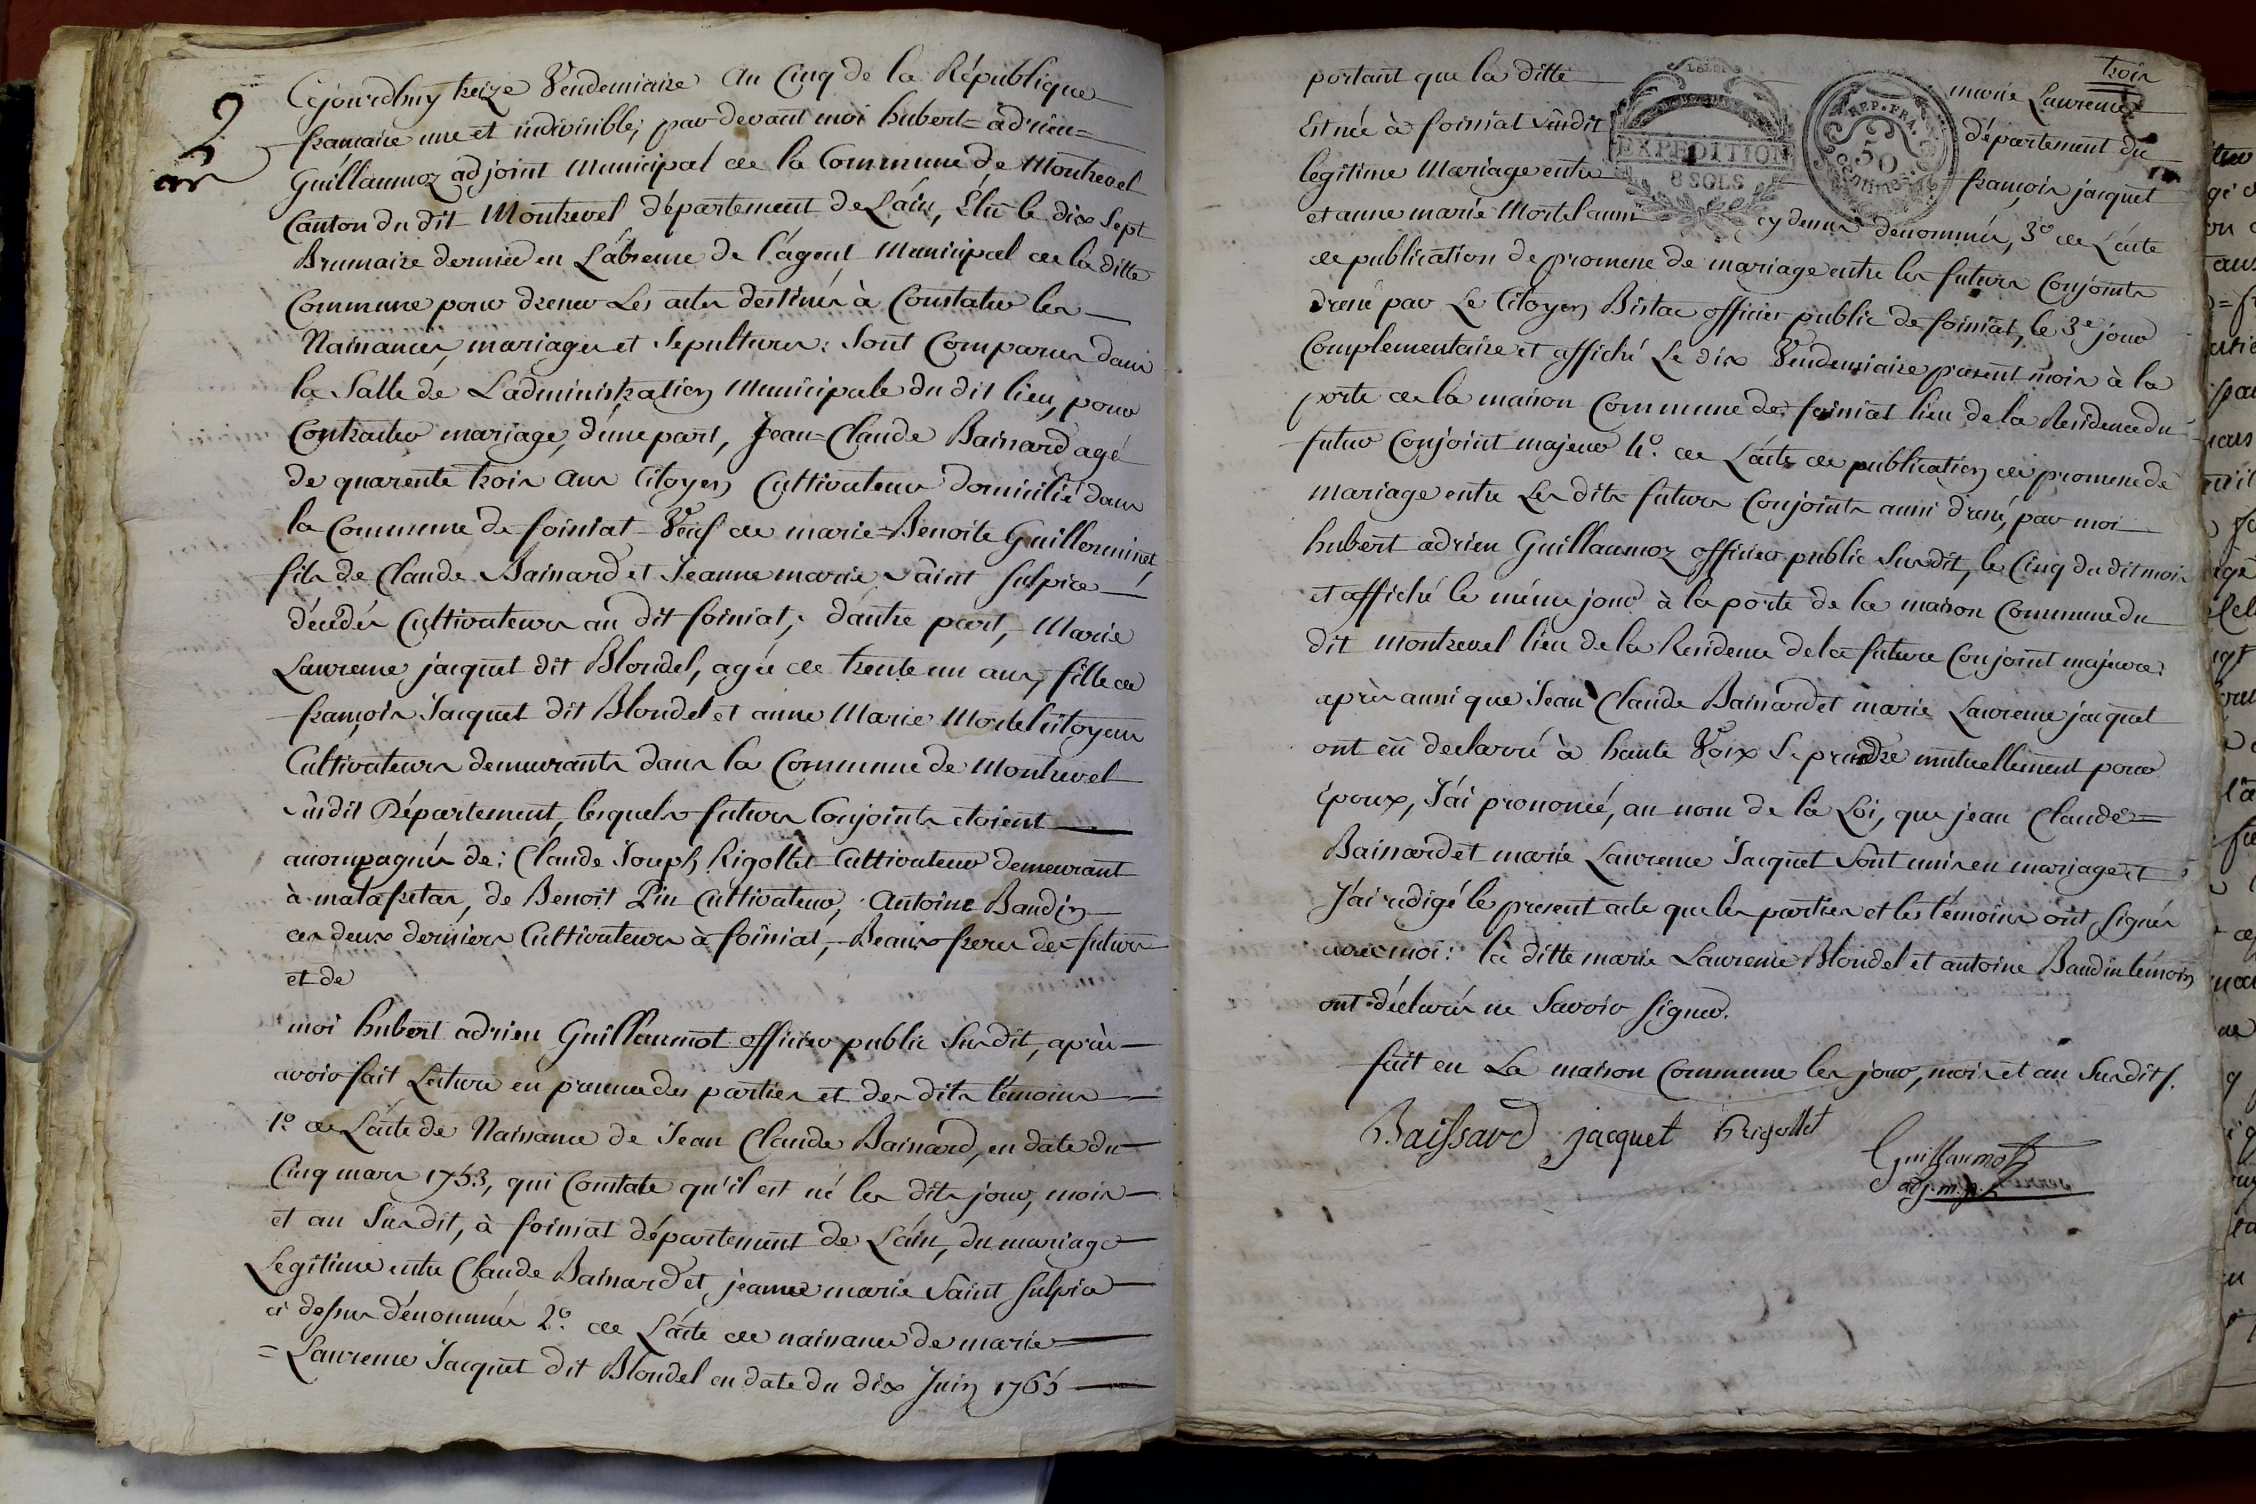 2
Cejourdhuy treize Vendemiaire an Cinq de la République
francaise une et indivisible; par devant moi hubert=adrien=
Guillaumoz adjoint Municipal de la Commune de Montrevel
Canton du dit Montrevel département de L'ain, Elu le dix Sept
Brumaire dernier en L'absence de l'agent Municipal de la ditte
Commune pour dresser Les actes destinés à Constater les
Naissances, mariages et Sepultures: Sont Comparus dans
la Salle de L'administration Municipale du dit lieu, pour
Contracter mariage, d'une part, Jean=Claude Baissard agé
de quarente trois ans Citoyen Cultivateur domicilié dans
la Commune de foissiat Veuf de marie=Benoite Guilleminet
fils de Claude Baissard et Jeanne marie Saint Sulpice
décédés Cultivateurs au dit foissiat; d'autre part, Marie
Laurence jacquet dit Blondel, agée de trente un ans, fille de
françois Jacquet dit Blondel et anne Marie Mortel Citoyens
Cultivateurs demeurants dans la Commune de Montrevel
susdit Département, lesquels futurs Conjoints etoient
accompagnés de: Claude Joseph Rigollet Cultivateur demeurant
à malafretas, de Benoit Pin Cultivateur, Antoine Baudin
ces deux derniers Cultivateurs à foissiat, Beaux freres des futurs
et de
moi hubert adrien Guillaumot officier public Susdit, après
avoir fait Lecture en presence des parties et des dits témoins
1.° de L'acte de Naissance de Jean Claude Baissard, en date du
Cinq mars 1753, qui Constate qu'il est né les dits jour, mois
et an Susdit, à foissiat département de L'ain, du mariage
Legitime entre Claude Baissard et jeanne marie Saint Sulpice
ci dessus dénommés 2.° de L'acte de naissance de marie
=Laurence Jacquet dit Blondel en date du dix Juin 1765
trois
portant que la ditte marie Laurence
Est née à foissiat Susdit département du
legitime Mariage entre françois jacquet
et anne marie Mortel aussi cy dessus dénommés, 3.° de L'acte
de publication de promesse de mariage entre les futurs Conjoints
dressé par Le Citoyen Bistac officier public de foissiat, le 3.e jour
Complementaire et affiché Le dix Vendemiaire présent mois à la
porte de la maison Commune de foissiat lieu de la Residence du
futur Conjoint majeur 4.° de L'acte de publication de promesse de
mariage entre Les dits futurs Conjoints aussi dressé, par moi
hubert adrien Guillaumoz officier public Susdit, le Cinq du dit mois
et affiché le même jour à la porte de la maison Commune du
dit Montrevel lieu de la Residence de la future Conjoint majeure;
après aussi que Jean Claude Baissard et marie Laurence jacquet
ont eu declarré à haute Voix Se prendre mutuellement pour
époux, J'ai prononcé, au nom de la Loi, que jean Claude=
Baissard et marie Laurence Jacquet Sont unis en mariage et
J'ai redigé le present acte que les parties et les témoins ont signés
avec moi: la ditte marie Laurence Blondel et antoine Baudin témoin
ont déclarés ne Savoir signer.
fait en La maison Commune les jour, mois et an Susdits.
Baissard jacquet Rigollet
Guillaumot
adj. m. p.
EXPEDITION
8 SOLS
REP. FRA.
50
Centimes